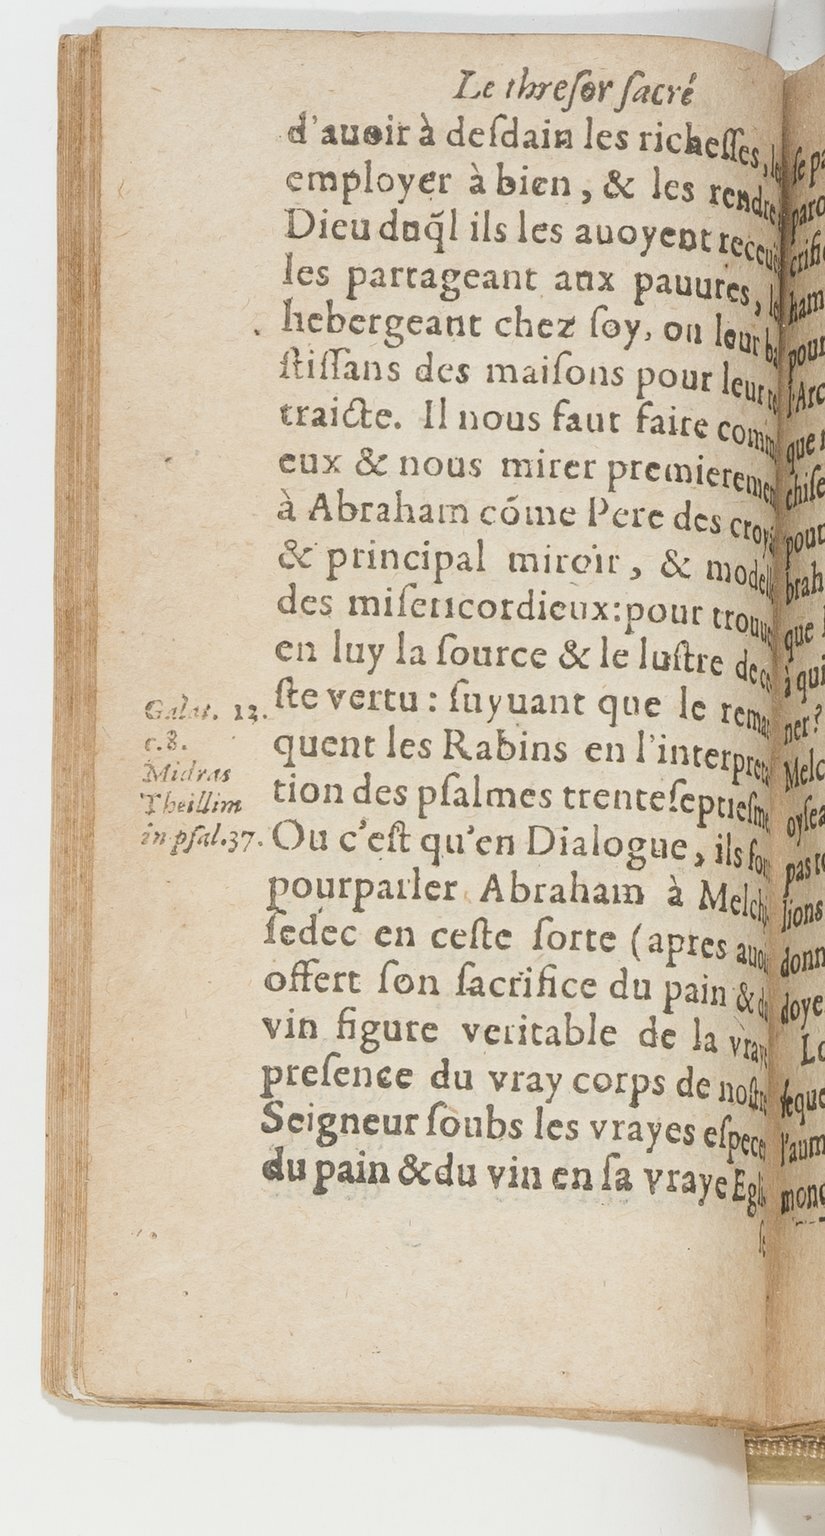 Le threſor ſacré
d'auoir à deſdain les richeſſes,
employer à bien, & les rendre
Dieu duq̃l ils les auoyent receu
les partageant aux pauures,
hebergeant chez ſoy, ou leur
ſtiſſans des maiſons pour leur
traicte. Il nous faut faire comm
eux & nous mirer premieremen
à Abraham cõme Pere des croy
& principal miroir, & modell
des miſericordieux: pour trouu
en luy la ſource & le luſtre de ce
ſte vertu: ſuyuant que le remar
quent les Rabins en l'interpreta
tion des pſalmes trenteſeptieſme
Ou c'eſt qu'en Dialogue, ils font
pourparler Abraham à Melchi
ſedec en ceſte ſorte (apres auoi
offert ſon ſacrifice du pain & du
vin figure veritable de la vraye
preſence du vray corps de noſtre
Seigneur ſoubs les vrayes eſpeces
du pain & du vin en ſa vraye Egli
ſe
Galat. 12.
c.8.
Midras
Theillim
in pſal.37.